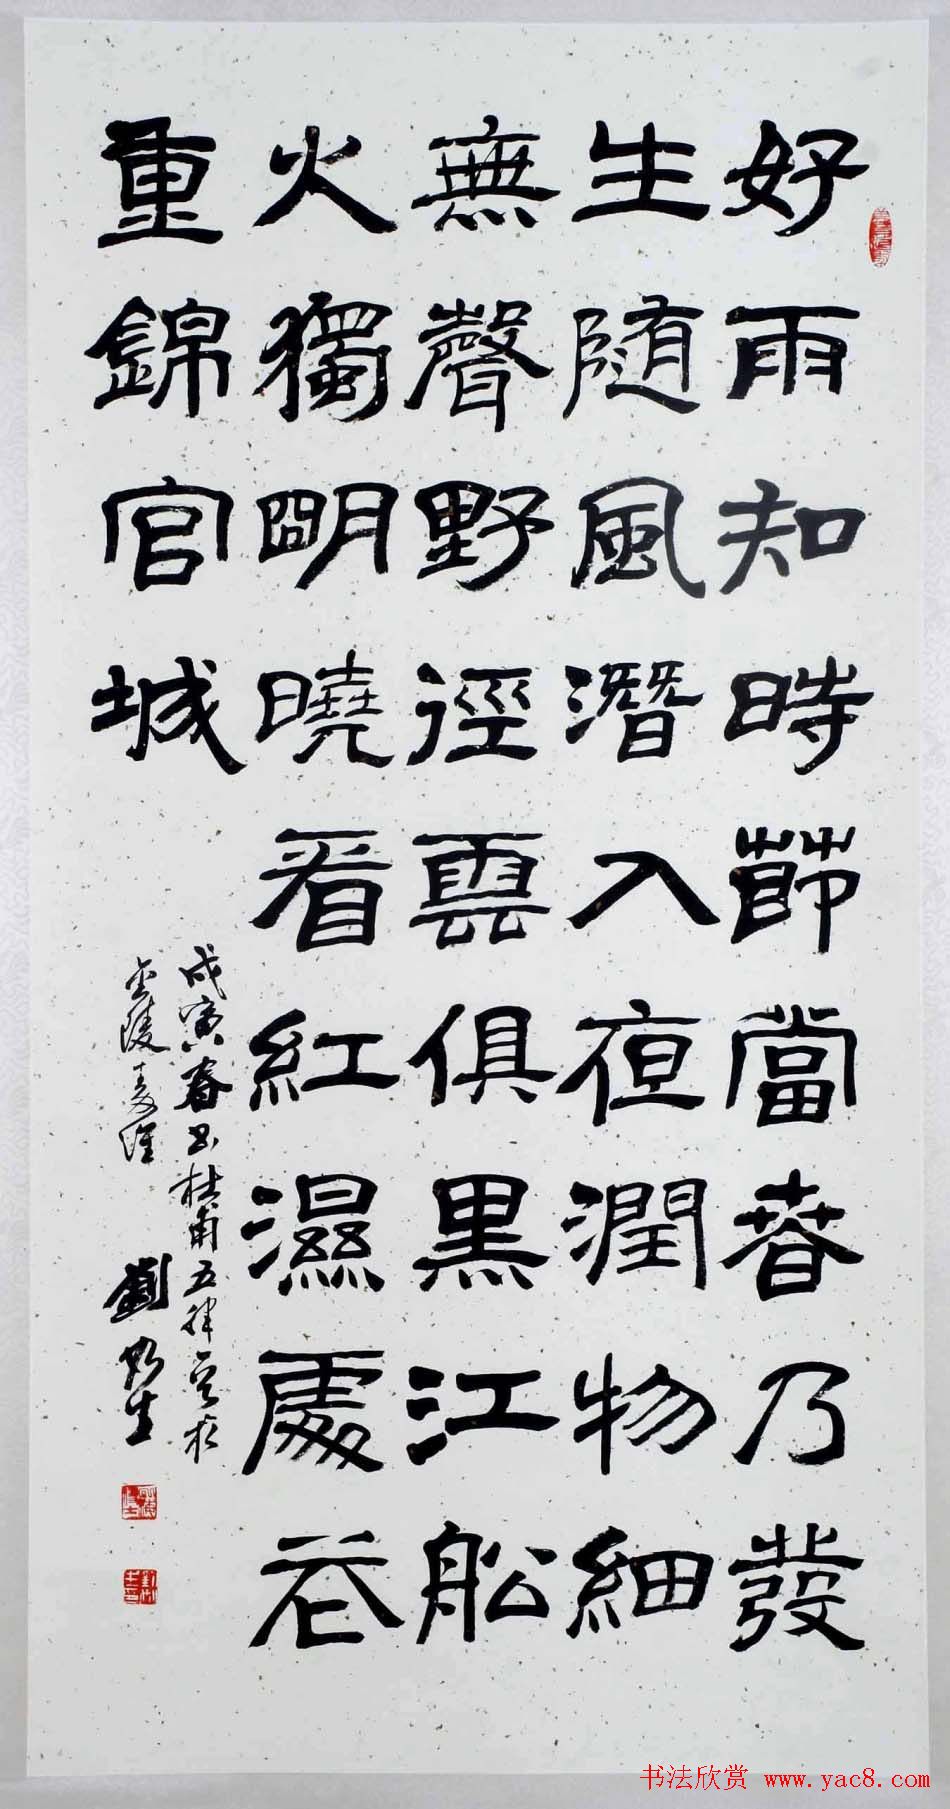 好雨知時莭當春乃發
生随風潛入夜潤物細
無聲野徑雲俱黑江舩
火獨朙曉看紅濕處花
重錦官城
戊寅春书杜甫五律於
金陵
劉生
书法欣赏 www.yac8.com